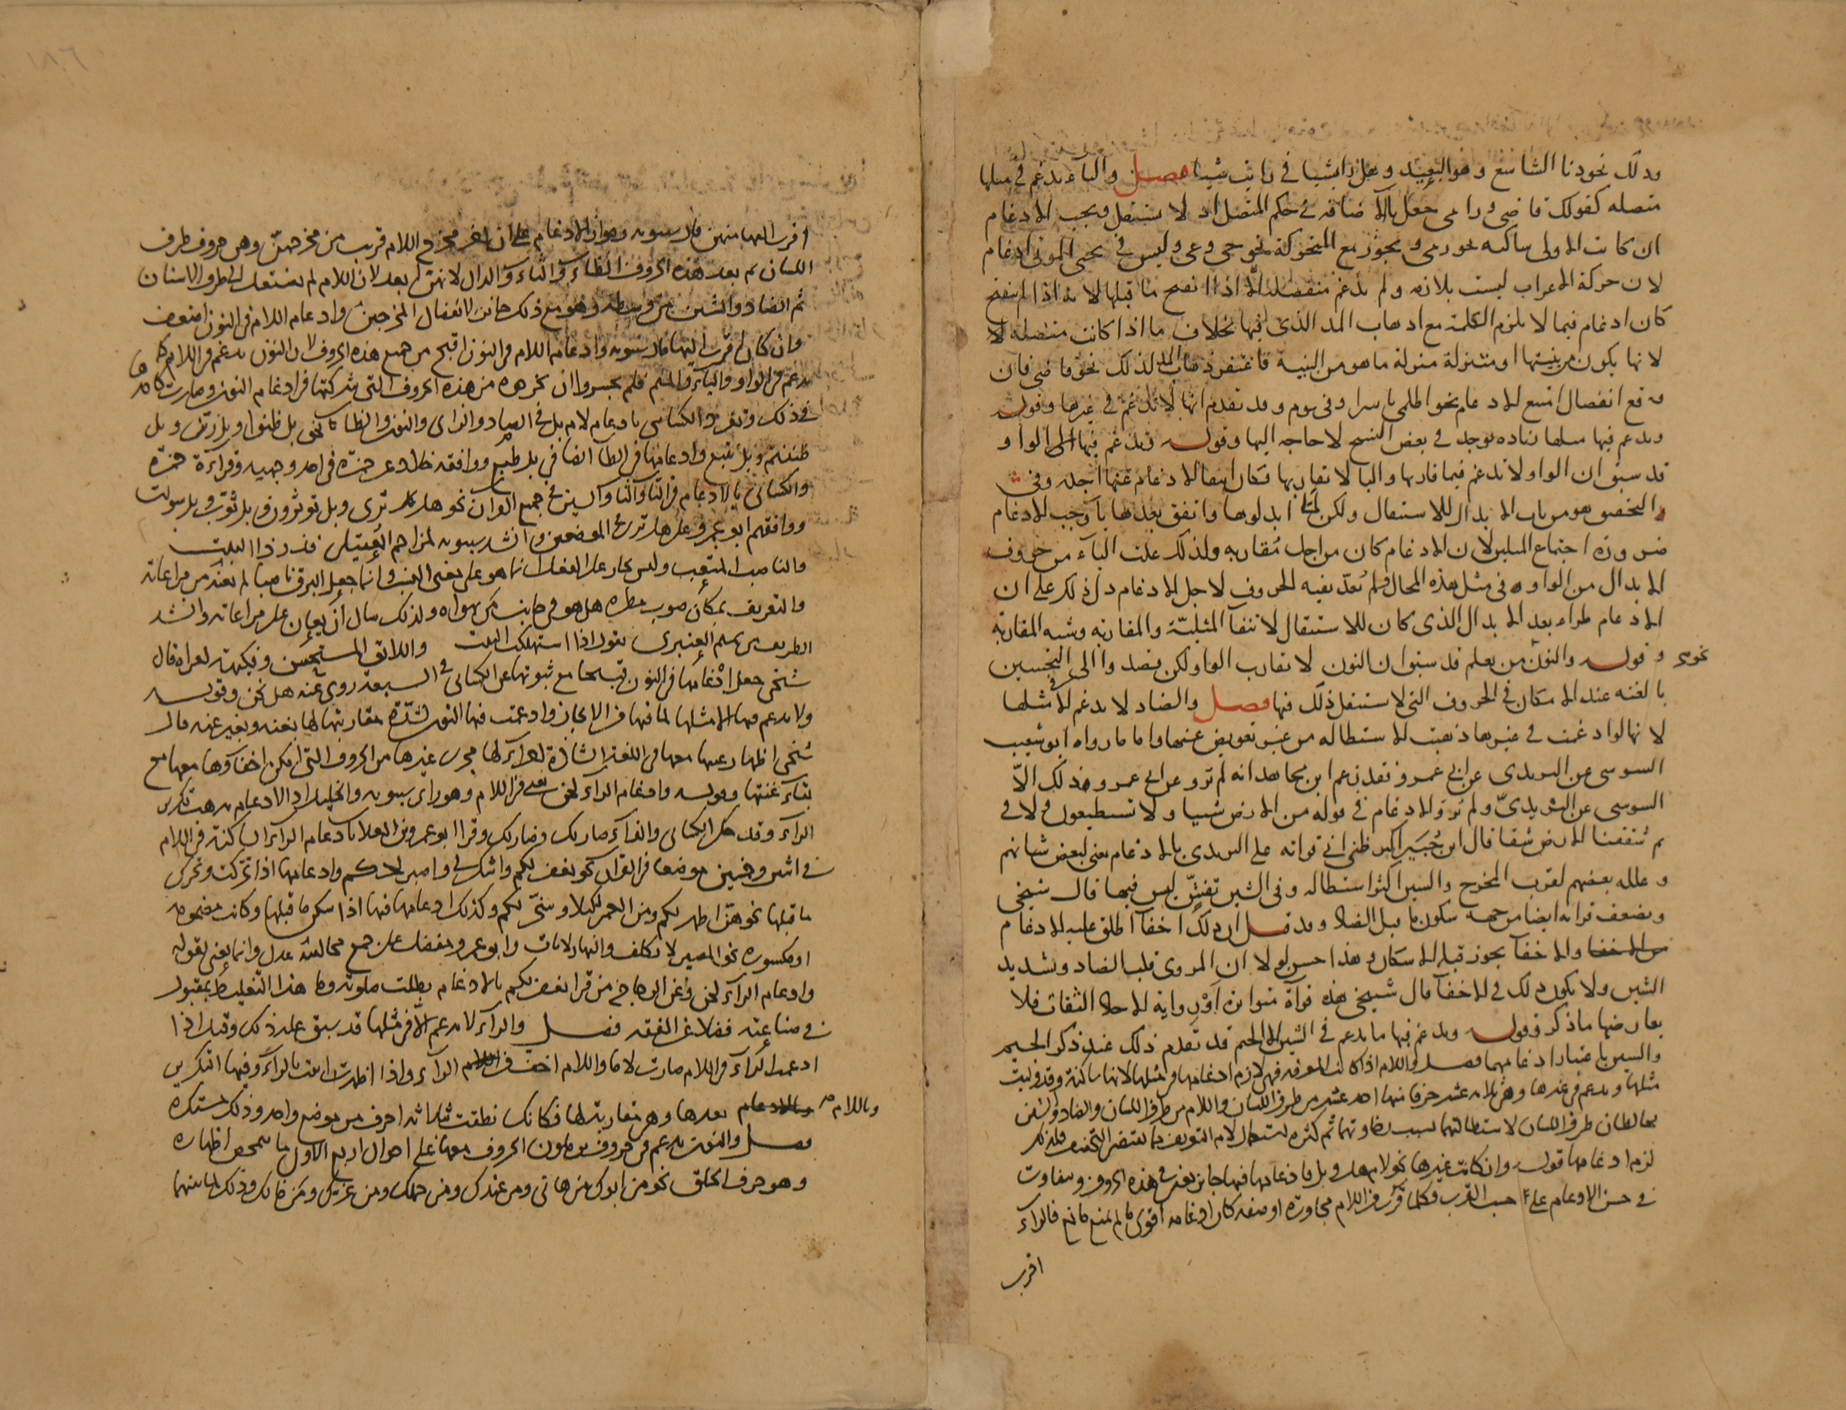 وذلك نحو دنا الشاسع وهو البعيد وهل رايت شيا في رايت شيا فصل والياء تدغم في مثلها
متصلة كقولك قاضي ورامي جعل يا الاضافة في حكم المتصل اذ لا تستقل ويجب الادغام
ان كانت الاولى ساكنة نحو رمي ويجوز مع المتحركة نحو حي وعي وليس في يحيي الموتى ادغام
لان حركة الاعراب ليست بلازمة ولم تدغم منفصلة الا اذا انفتح ما قبلها لانه اذا لم ينفتح
كان ادغام فيما لا يلزم الكلمة مع اذهاب المد الذي فيها بخلاف ما اذا كانت متصلة
لانها يكون من بنيتها او متنزلة منزلة ما هو من البنية فاغتفر ذهاب المد لذلك نحو قاضي فان
وقع انفصال امتنع الادغام نحو اظلمي ياسرا وفي يوم وقد تقدم انها لا تدغم في غيرها وقوله
وتدغم فيها مثلها زيادة توجد في بعض النسخ لا حاجة اليها وقوله وتدغم فيها الواو
قد سبق ان الواو لا تدغم فيما قاربها واليا لا تقاربها فكان انتفا الادغام عنها اجله وفي
التحقيق هو من باب الابدال للاستثقال ولكن لما ابدلوها واتفق بعدها يا وجب الادغام
ضرورة اجتماع المثلين لان الادغام كان من اجل مقاربة ولذلك عدت الياء من حروف
الابدال من الواو في مثل هذه المحال فلم تعد بقية الحروف لاجل الادغام دل ذلك على ان
الادغام طراء بعد الابدال الذي كان للاستثقال لانتفا المثلية والمقاربة وشبه المقاربة
نحوى وقوله والنون من يعلم قد سبق ان النون لا تقارب الواو لكن قصدوا الى التحسين
بالغنة عند الامكان في الحروف التي لا تستثقل ذلك فيها فصل والضاد لا تدغم الا في مثلها
لانها لو ادغمت في غيرها ذهبت الاستطالة من غير تعويض عنها واما ما رواه ابو شعيب
السوسي عن اليزيدي عن ابي عمرو فقد زعم ابن مجاهد انه لم يرو عن ابي عمرو ذلك الا
السوسي عن اليزيدي ولم يرو الادغام في قوله من الارض شيا ولا تستطيعون ولا في
ثم شققنا الارض شقا قال ابن جبير اكبر ظني اني قراته على اليزيدي بالادغام يعني لبعض شانهم
وعلله بعضهم لقرب المخرج والشين اكثر استطالة وفي الشين تفش ليس فيها قال شيخي
ويضعف قراته ايضا من جهة سكون ما قبل الضاد وقد قيل ان ذلك اخفا اطلق عليه الادغام
والاخفا يجوز قبله الاسكان وهذا حسن لولا ان المروي قلب الضاد وتشديد
الشين ولا يكون ذلك في الاخفا قال شيخي هذه قراة متواترة او رواية الاجلا الثقات فلا
يعارضها ما ذكر وقوله وتدغم فيها ما يدغم في الشين الا الجيم قد تقدم ذلك عند ذكر الجيم
والشين باعتبار ادغامهما فصل واللام اذا كانت المعرفة فهي لازم ادغامها في مثلها لانها ساكنة وقد وليت
مثلها وتدغم في غيرها وهي ثلاثة عشر حرفا منها احد عشر من طرف اللسان واللام من طرف اللسان والضاد والشين
يخالطان طرف اللسان لاستطالتهما بسبب رخاوتهما ثم كثرة استعمال لام التعريف مما يقتضي التخفيف فلذلك
لزم ادغامها قوله وان كانت غيرها نحو لام هل وبل فادغامها فيها جائز يعني في هذه الحروف ويتفاوت
في حسن الادغام على حسب القرب فكلما قرب من اللام مجاورة او صفة كان ادغامه اقوى ما لم يمنع مانع فالراء
اقرب
اقرب اليها منهن قال سيبويه وجواز الادغام على ان اخر مخرج اللام قريب من مخرجهن وهن حروف طرف
اللسان ثم بعد هذه الحروف الظاء والثاء والذال لانهن ابعد لان اللام لم تستعل الى طرف الاسنان
ثم الضاد والشين من وسطه وهو مع ذلك جائز لاتصال المخرجين وادغام اللام في النون اضعف
وان كان اقرب اليها قال سيبويه وادغام اللام في النون اقبح من جميع هذه الحروف لان النون تدغم في اللام كما
تدغم في الواو والياء والميم فلم يجسروا ان يخرجوه من هذه الحروف التي شركتها في ادغام النون وصارت كاحدها
في ذلك وتفرد الكسائي بادغام لام بل في الضاد والزاي والنون والطا كما في بل ظننتم او بل زين وبل
ظننتم وبل نتبع وادغامها في الطا ايضا في بل طبع ووافقه خلاد عن حمزة في احد وجهيه وقراءة حمزة
والكسائي بالادغام في التا والثا والسين في جميع القران نحو هل ترى وبل توثرون وهل ثوب وبل سولت
ووافقهم ابو عمرو على هل ترى في الموضعين وانشد سيبويه لمزاحم العقيلي فذر ذا البيت
والناصب المتعب وليس بجار على الفعل انما هو على معنى النسب وانما جعل البرق ناصبا لم بعده من مراعاته
والتعريف بمكان صوب مطره هل هو في جانب من يهواه ولذلك سال ان يعان على مراعاته وانشد
لطريف بن تميم العنبري تقول اذا استهلكت البيت واللائق المستحسن وفكيهة امراة قال
شيخي جعل ادغامها في النون قبيحا مع ثبوتها عن الكسائي في السبعة روي عنه هل نحن وقوله
ولا تدغم فيها الا مثلها لما فيها من الايجاز وادغمت فيها النون لشدة مقاربتها لها بغنة وبغير غنة قال
شيخي اظهار عينها معها في اللغة الشاذة لاجرائها مجرى غيرها من الحروف التي امكن اخفاؤها معها مع
بقاء غنتها وقوله وادغام الراء لحن يعني في اللام وهو راي سيبويه والخليل اذ الادغام يذهب تكرير
الراء وقد حكى الكسائي والفراء صار لك وضار لك وقرا ابو عمرو بن العلاء بادغام الراء الساكنة في اللام
في اثنين وخمسين موضعا من القران نحو يغفر لكم واشكر لي واصبر لحكم وادغامها اذا تحركت وتحرك
ما قبلها نحو هن اطهر لكم ومن البحر لتاكلوا وسخر لكم وكذلك ادغامها فيها اذا سكن ما قبلها وكانت مضمومة
او مكسورة نحو المصير لا يكلف والنهار لايات وابو عمرو حفظا على جميع مخالفيه عدل وانما يعني بقوله
وادغام الراء لحن وعن الزجاج من قرا يغفر لكم بالادغام بطلت صلوته وما هذا التغليط بمقبول
في صناعته فضلا عن الفقه فصل والراء لا تدغم الا في مثلها قد سبق علة ذلك وقيل اذا
ادغمت الراء في اللام صارت لاما واللام اخف من الراء واذا اظهرت اتيت بالراء وفيها التكرير
وباللام بعدها وهي مقاربة لها فكانك نطقت بثلاثة احرف من موضع واحد وذلك مستكره
فصل والنون تدغم في حروف يرملون الحروف معها على احوال اربع الاول ما يمحض اظهاره
وهو حرف الحلق نحو من ابوك من هاني ومن عندك ومن حملك ومن غيرك ومن خانك وذلك لما بينهما